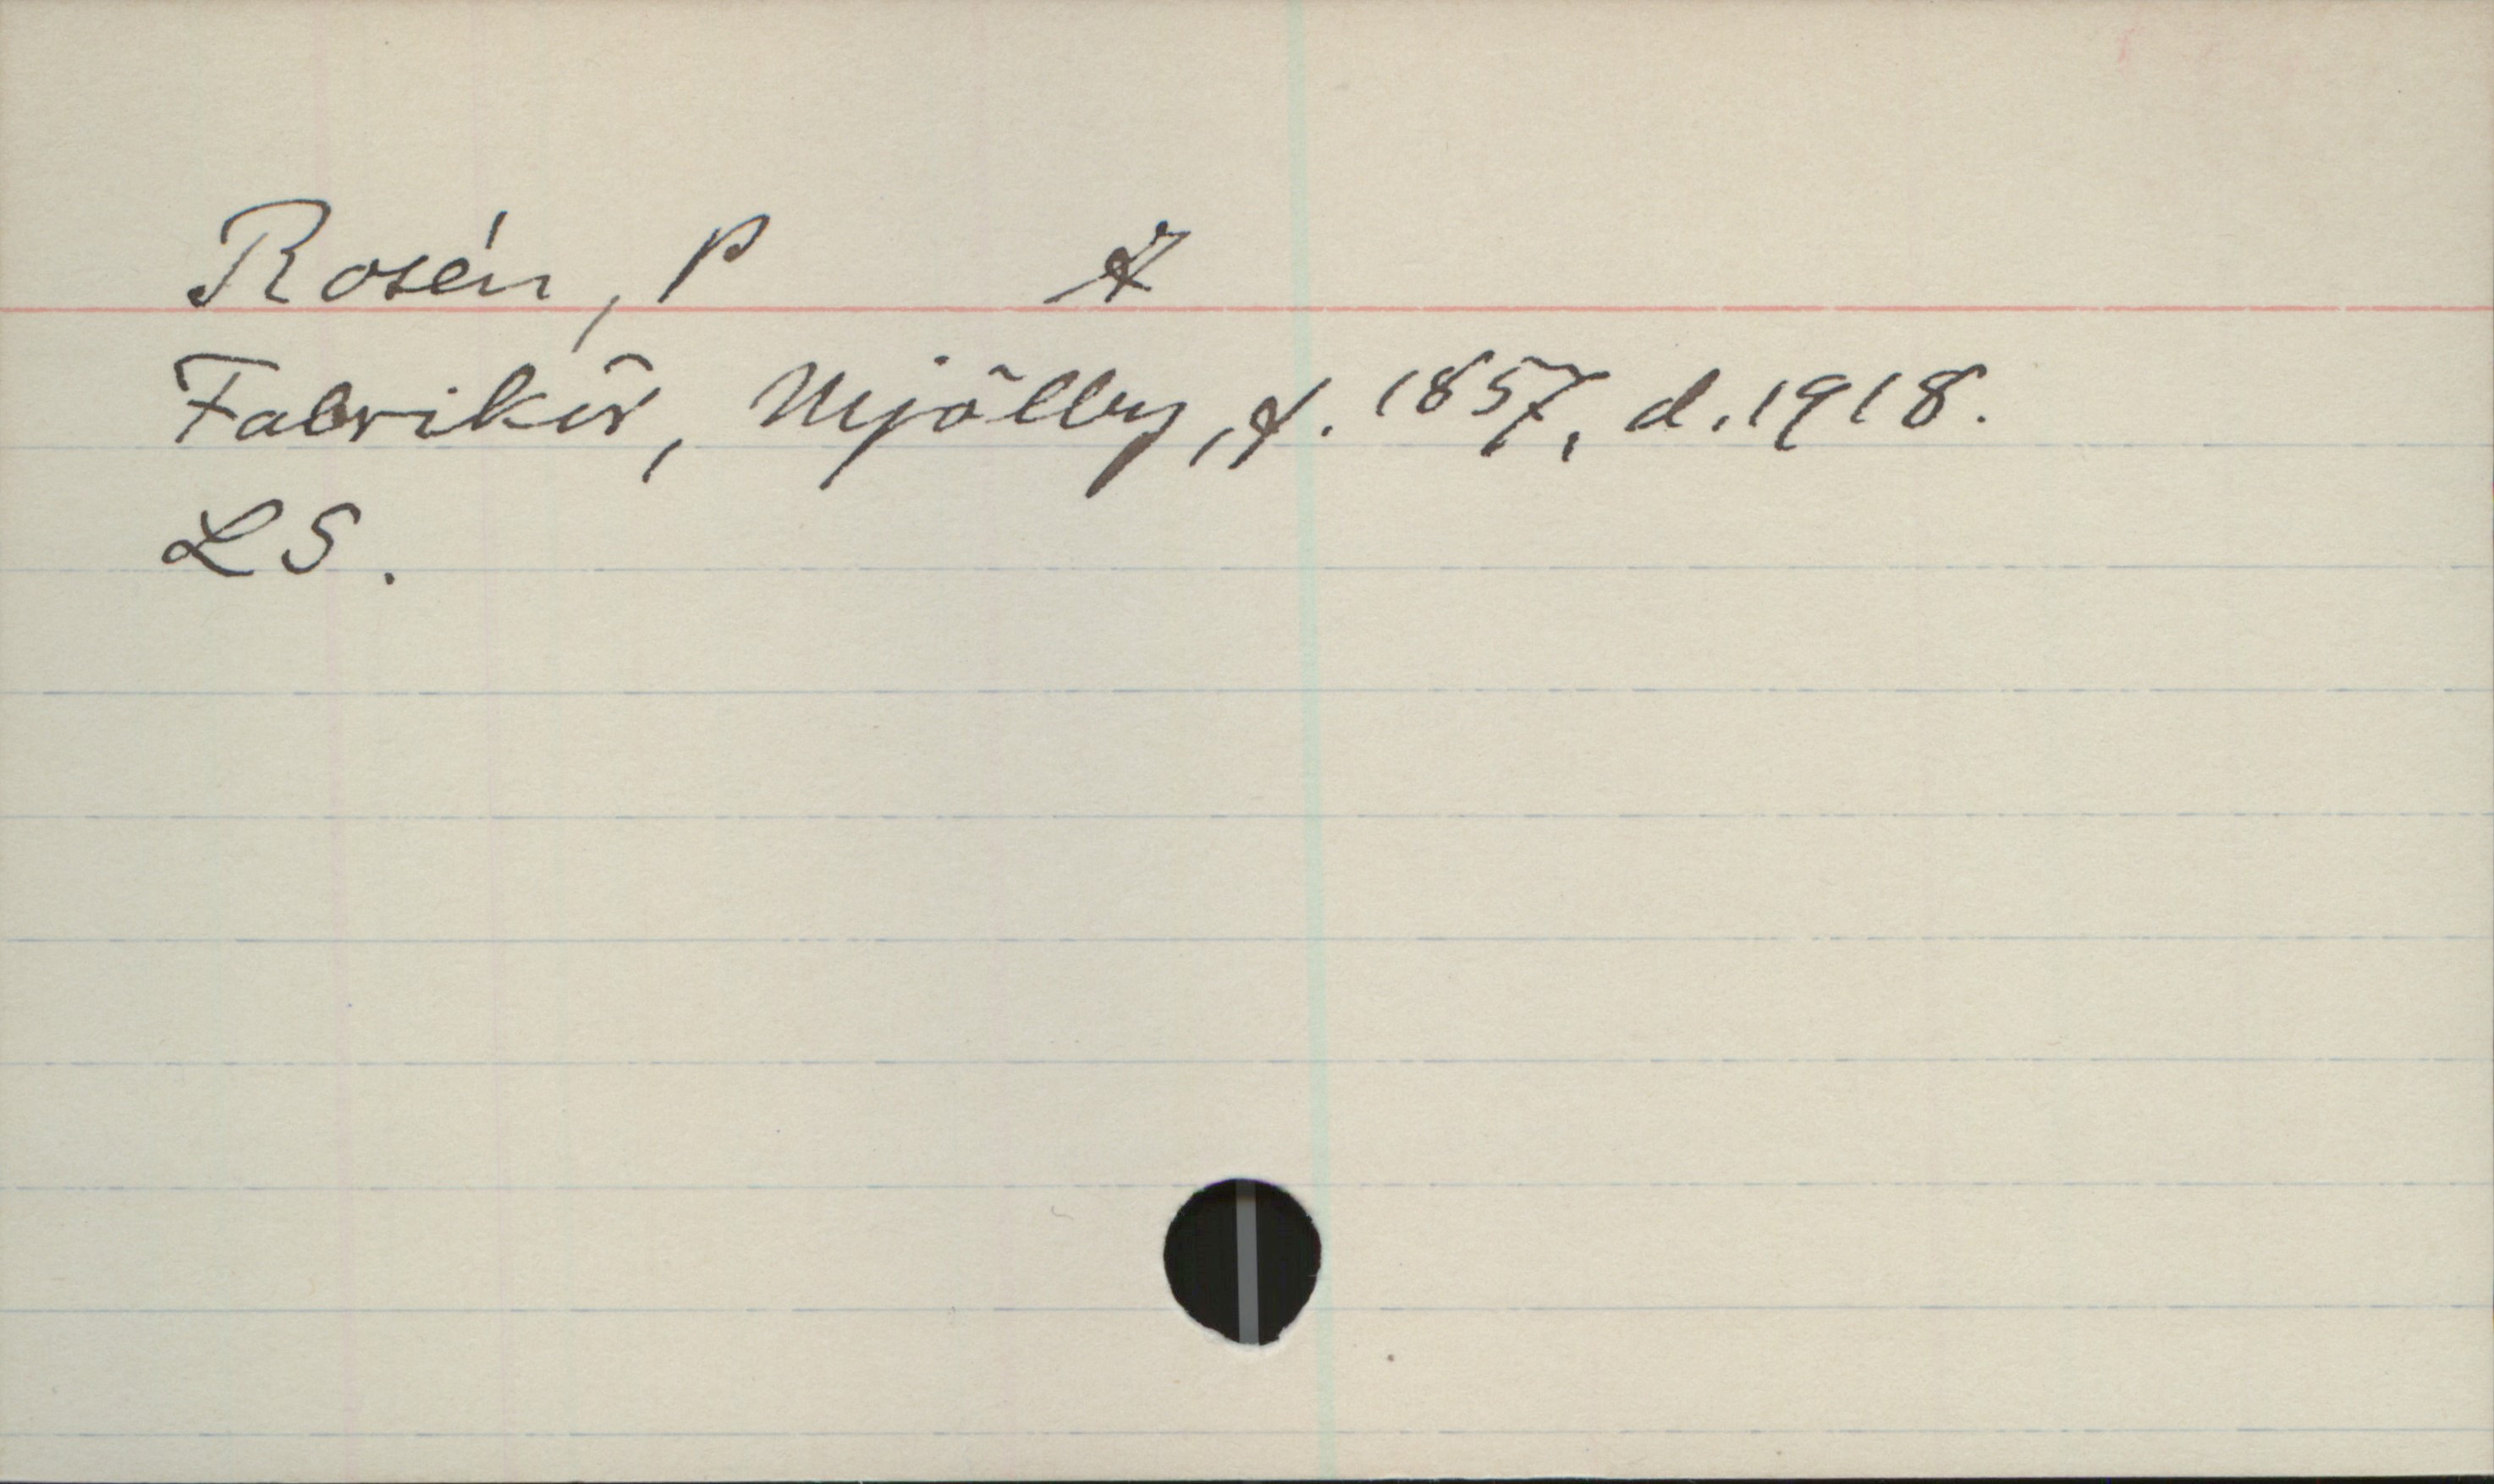 Rosén, P A
Fabrikör, Mjölby, f. 1857, d. 1918.
LS.